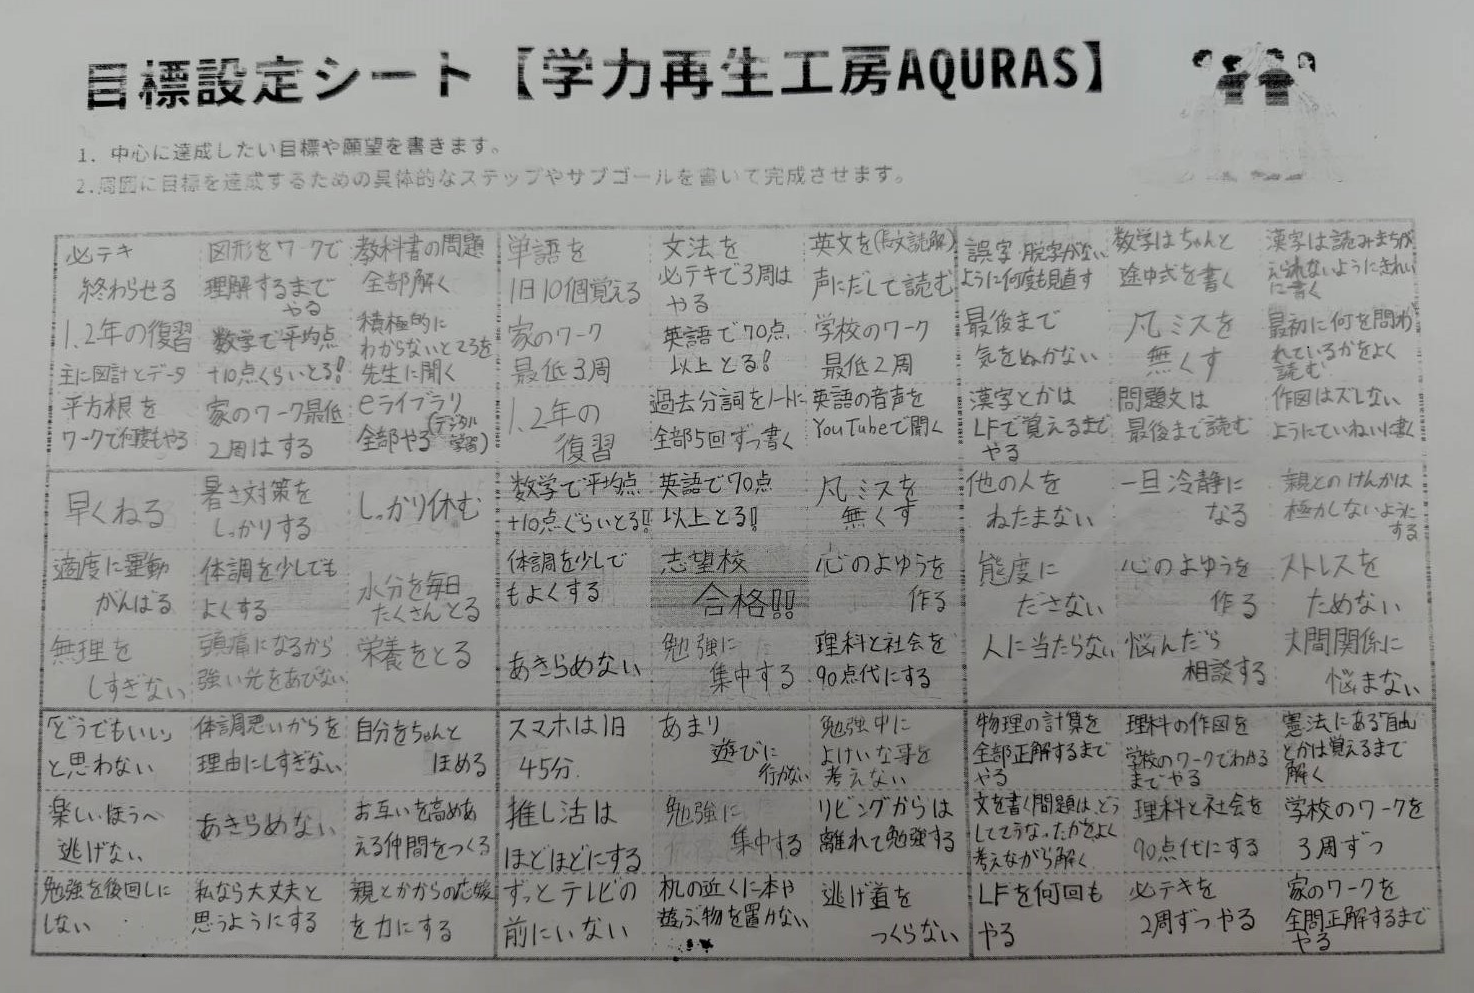 目標設定シート【学力再生工房AQURAS】
1. 中心に達成したい目標や願望を書きます。
2.周囲に目標を達成するための具体的なステップやサブゴールを書いて完成させます。
必テキ
終わらせる
図形をワークで
理解するまで
やる
教科書の問題
全部解く
単語を
1日10個覚える
文法を
必テキで3周は
やる
英文を(長文読解)
声にだして読む
誤字・脱字がない
ように何度も見直す
数学はちゃんと
途中式を書く
漢字は読みまちが
えられないようにきれい
に書く
1.2年の復習
主に図計とデータ
数学で平均点
+10点くらいとる!
積極的に
わからないところを
先生に聞く
家のワーク
最低3周
英語で70点
以上とる!
学校のワーク
最低2周
最後まで
気をぬかない
凡ミスを
無くす
最初に何を問わ
れているかをよく
読む
平方根を
ワークで何度もやる
家のワーク最低
2周はする
eライブラリ
全部やる(デジタル
学習)
1.2年の
復習
過去分詞をノートに
全部5回ずつ書く
英語の音声を
YouTubeで聞く
漢字とかは
LFで覚えるまで
やる
問題文は
最後まで読む
作図はズレない
ようにていねいに書く
早くねる
暑さ対策を
しっかりする
しっかり休む
数学で平均点
+10点ぐらいとる!!
英語で70点
以上とる!!
凡ミスを
無くす
他の人を
ねたまない
一旦冷静に
なる
親とのけんかは
極力しないように
する
適度に運動
がんばる
体調を少しでも
よくする
水分を毎日
たくさんとる
体調を少しで
もよくする
志望校
合格!!!
心のよゆうを
作る
態度に
ださない
心のよゆうを
作る
ストレスを
ためない
無理を
しすぎない
頭痛になるから
強い光をあびない
栄養をとる
あきらめない
勉強に
集中する
理科と社会を
90点代にする
人に当たらない
悩んだら
相談する
人間関係に
悩まない
「どうでもいい」
と思わない
体調悪いからを
理由にしすぎない
自分をちゃんと
ほめる
スマホは1日
45分
あまり
遊びに
行かない
勉強中に
よけいな事を
考えない
物理の計算を
全部正解するまで
やる
理科の作図を
学校のワークでわかる
までやる
憲法にある「自由」
とかは覚えるまで
解く
楽しいほうへ
逃げない
あきらめない
お互いを高めあ
える仲間をつくる
推し活は
ほどほどにする
勉強に
集中する
リビングからは
離れて勉強する
文を書く問題は、どう
してそうなったかをよく
考えながら解く
理科と社会を
90点代にする
学校のワークを
3周ずつ
勉強を後回しに
しない
私なら大丈夫と
思うようにする
親とかからの応援
を力にする
ずっとテレビの
前にいない
机の近くに本や
遊ぶ物を置かない
逃げ道を
つくらない
LFを何回も
やる
必テキを
2周ずつやる
家のワークを
全問正解するまで
やる